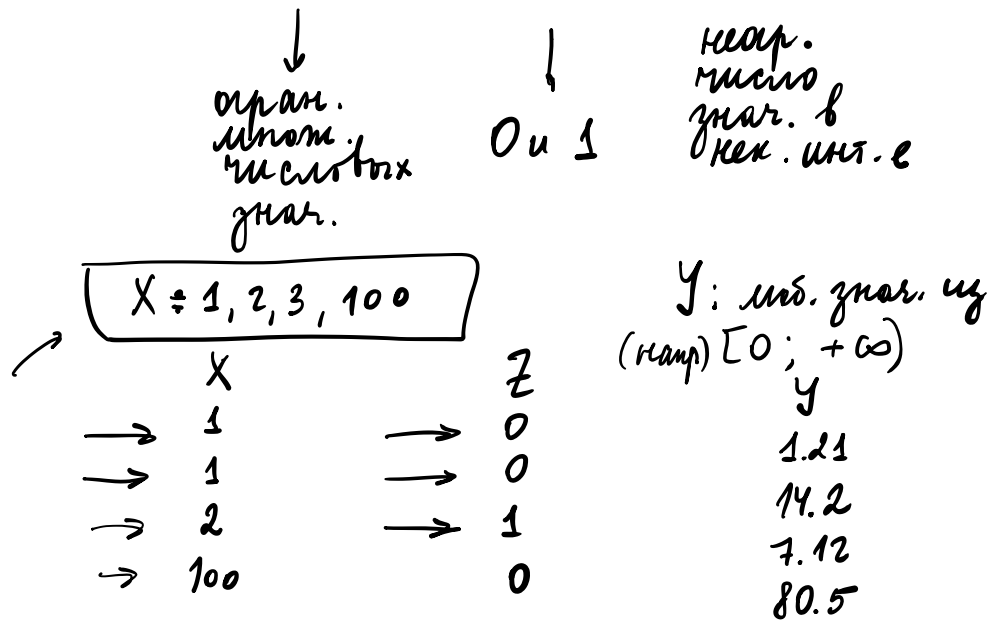 огран.
множ.
числовых
знач.
0 и 1
неогр.
число
знач. в
нек. инт.-е
X = 1, 2, 3, 100
Y: люб. знач. из
(напр) [0; +∞)
X
1
1
2
100
Z
0
0
1
0
Y
1.21
14.2
7.12
80.5